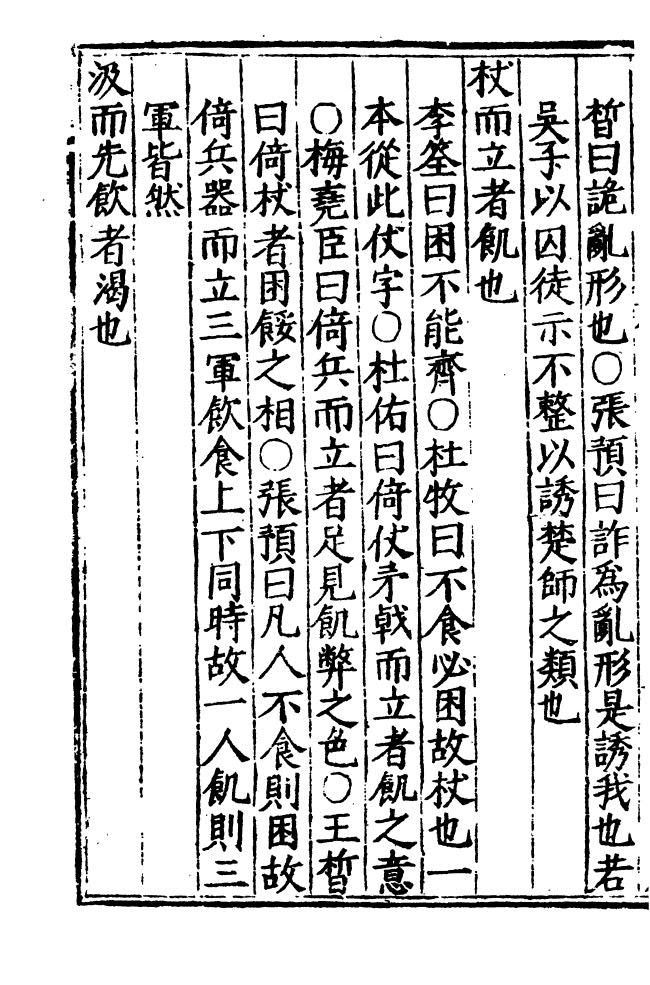 晳曰詭亂形也○張預曰詐爲亂形是誘我也若
吳子以囚徒示不整以誘楚師之類也
杖而立者飢也
李筌曰困不能齊○杜牧曰不食必困故杖也一
本從此仗字○杜佑曰倚仗矛戟而立者飢之意
○梅堯臣曰倚兵而立者足見飢弊之色○王晳
曰倚杖者困餒之相○張預曰凡人不食則困故
倚兵器而立三軍飲食上下同時故一人飢則三
軍皆然
汲而先飲者渴也